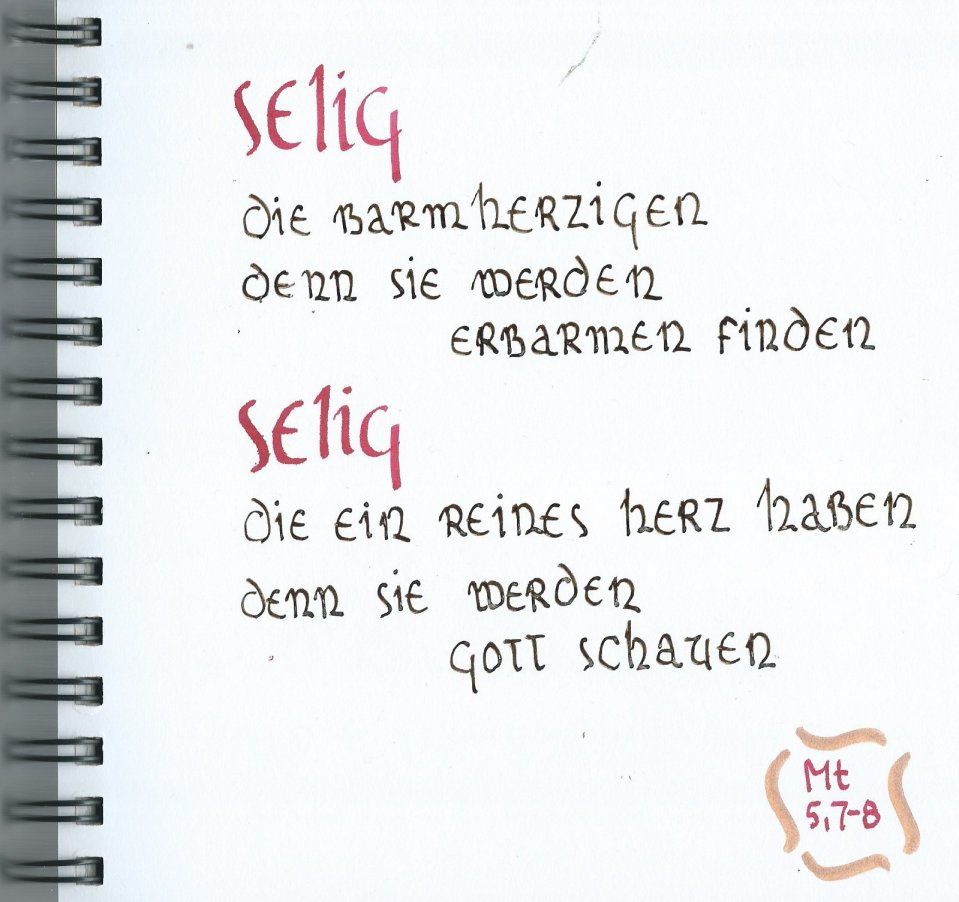 selig
die barmherzigen
denn sie werden
erbarmen finden
selig
die ein reines herz haben
denn sie werden
gott schauen
Mt
5,7-8